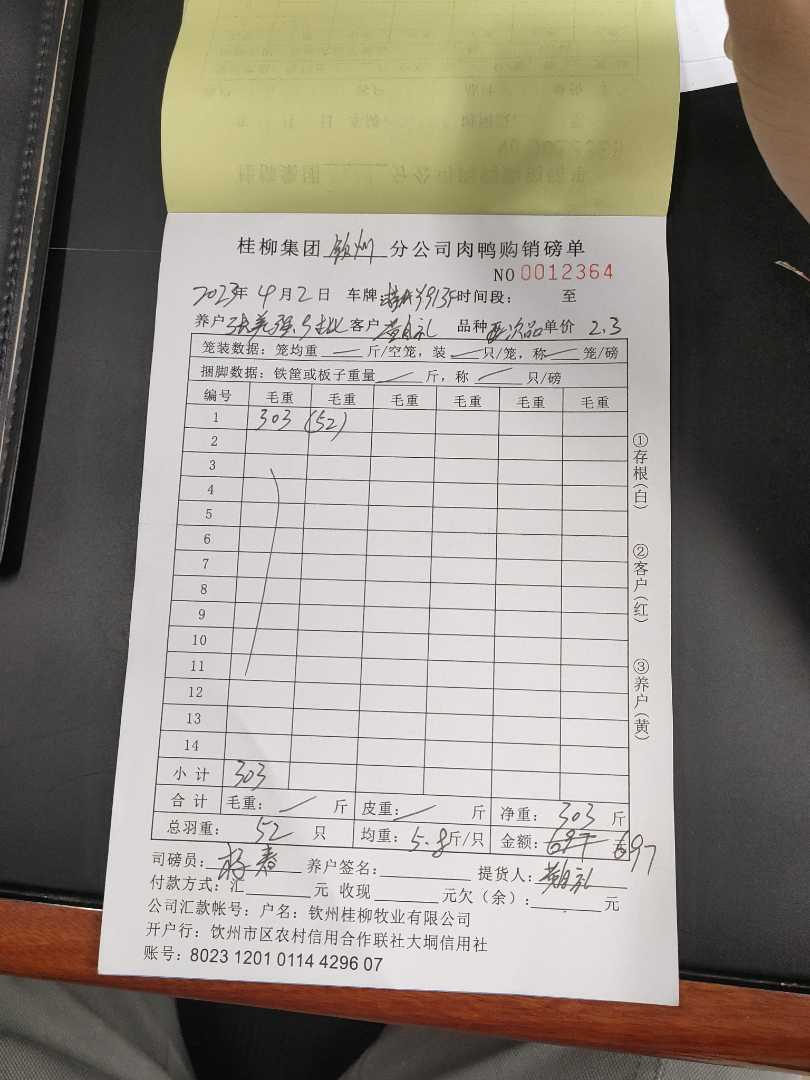 桂柳集团 钦州 分公司肉鸭购销磅单
NO 0012364
2023年 4月 2日 车牌: 时间段: 至
养户 客户 品种 次品 单价 2.3
笼装数据: 笼均重 — 斤/空笼, 装 — 只/笼, 称 — 笼/磅
捆脚数据: 铁筐或板子重量 — 斤, 称 — 只/磅
编号 毛重 毛重 毛重 毛重 毛重 毛重
1 303 (52)
2
3
4
5
6
7
8
9
10
11
12
13
14
小 计 303
合 计 毛重: / 斤 皮重: / 斤 净重: 303 斤
总羽重: 52 只 均重: 5.8 斤/只 金额: 697
司磅员: 养户签名: 提货人:
付款方式: 汇 元 收现 元欠(余): 元
公司汇款帐号: 户名: 钦州桂柳牧业有限公司
开户行: 钦州市区农村信用合作联社大垌信用社
账号: 8023 1201 0114 4296 07
①存根(白)
②客户(红)
③养户(黄)